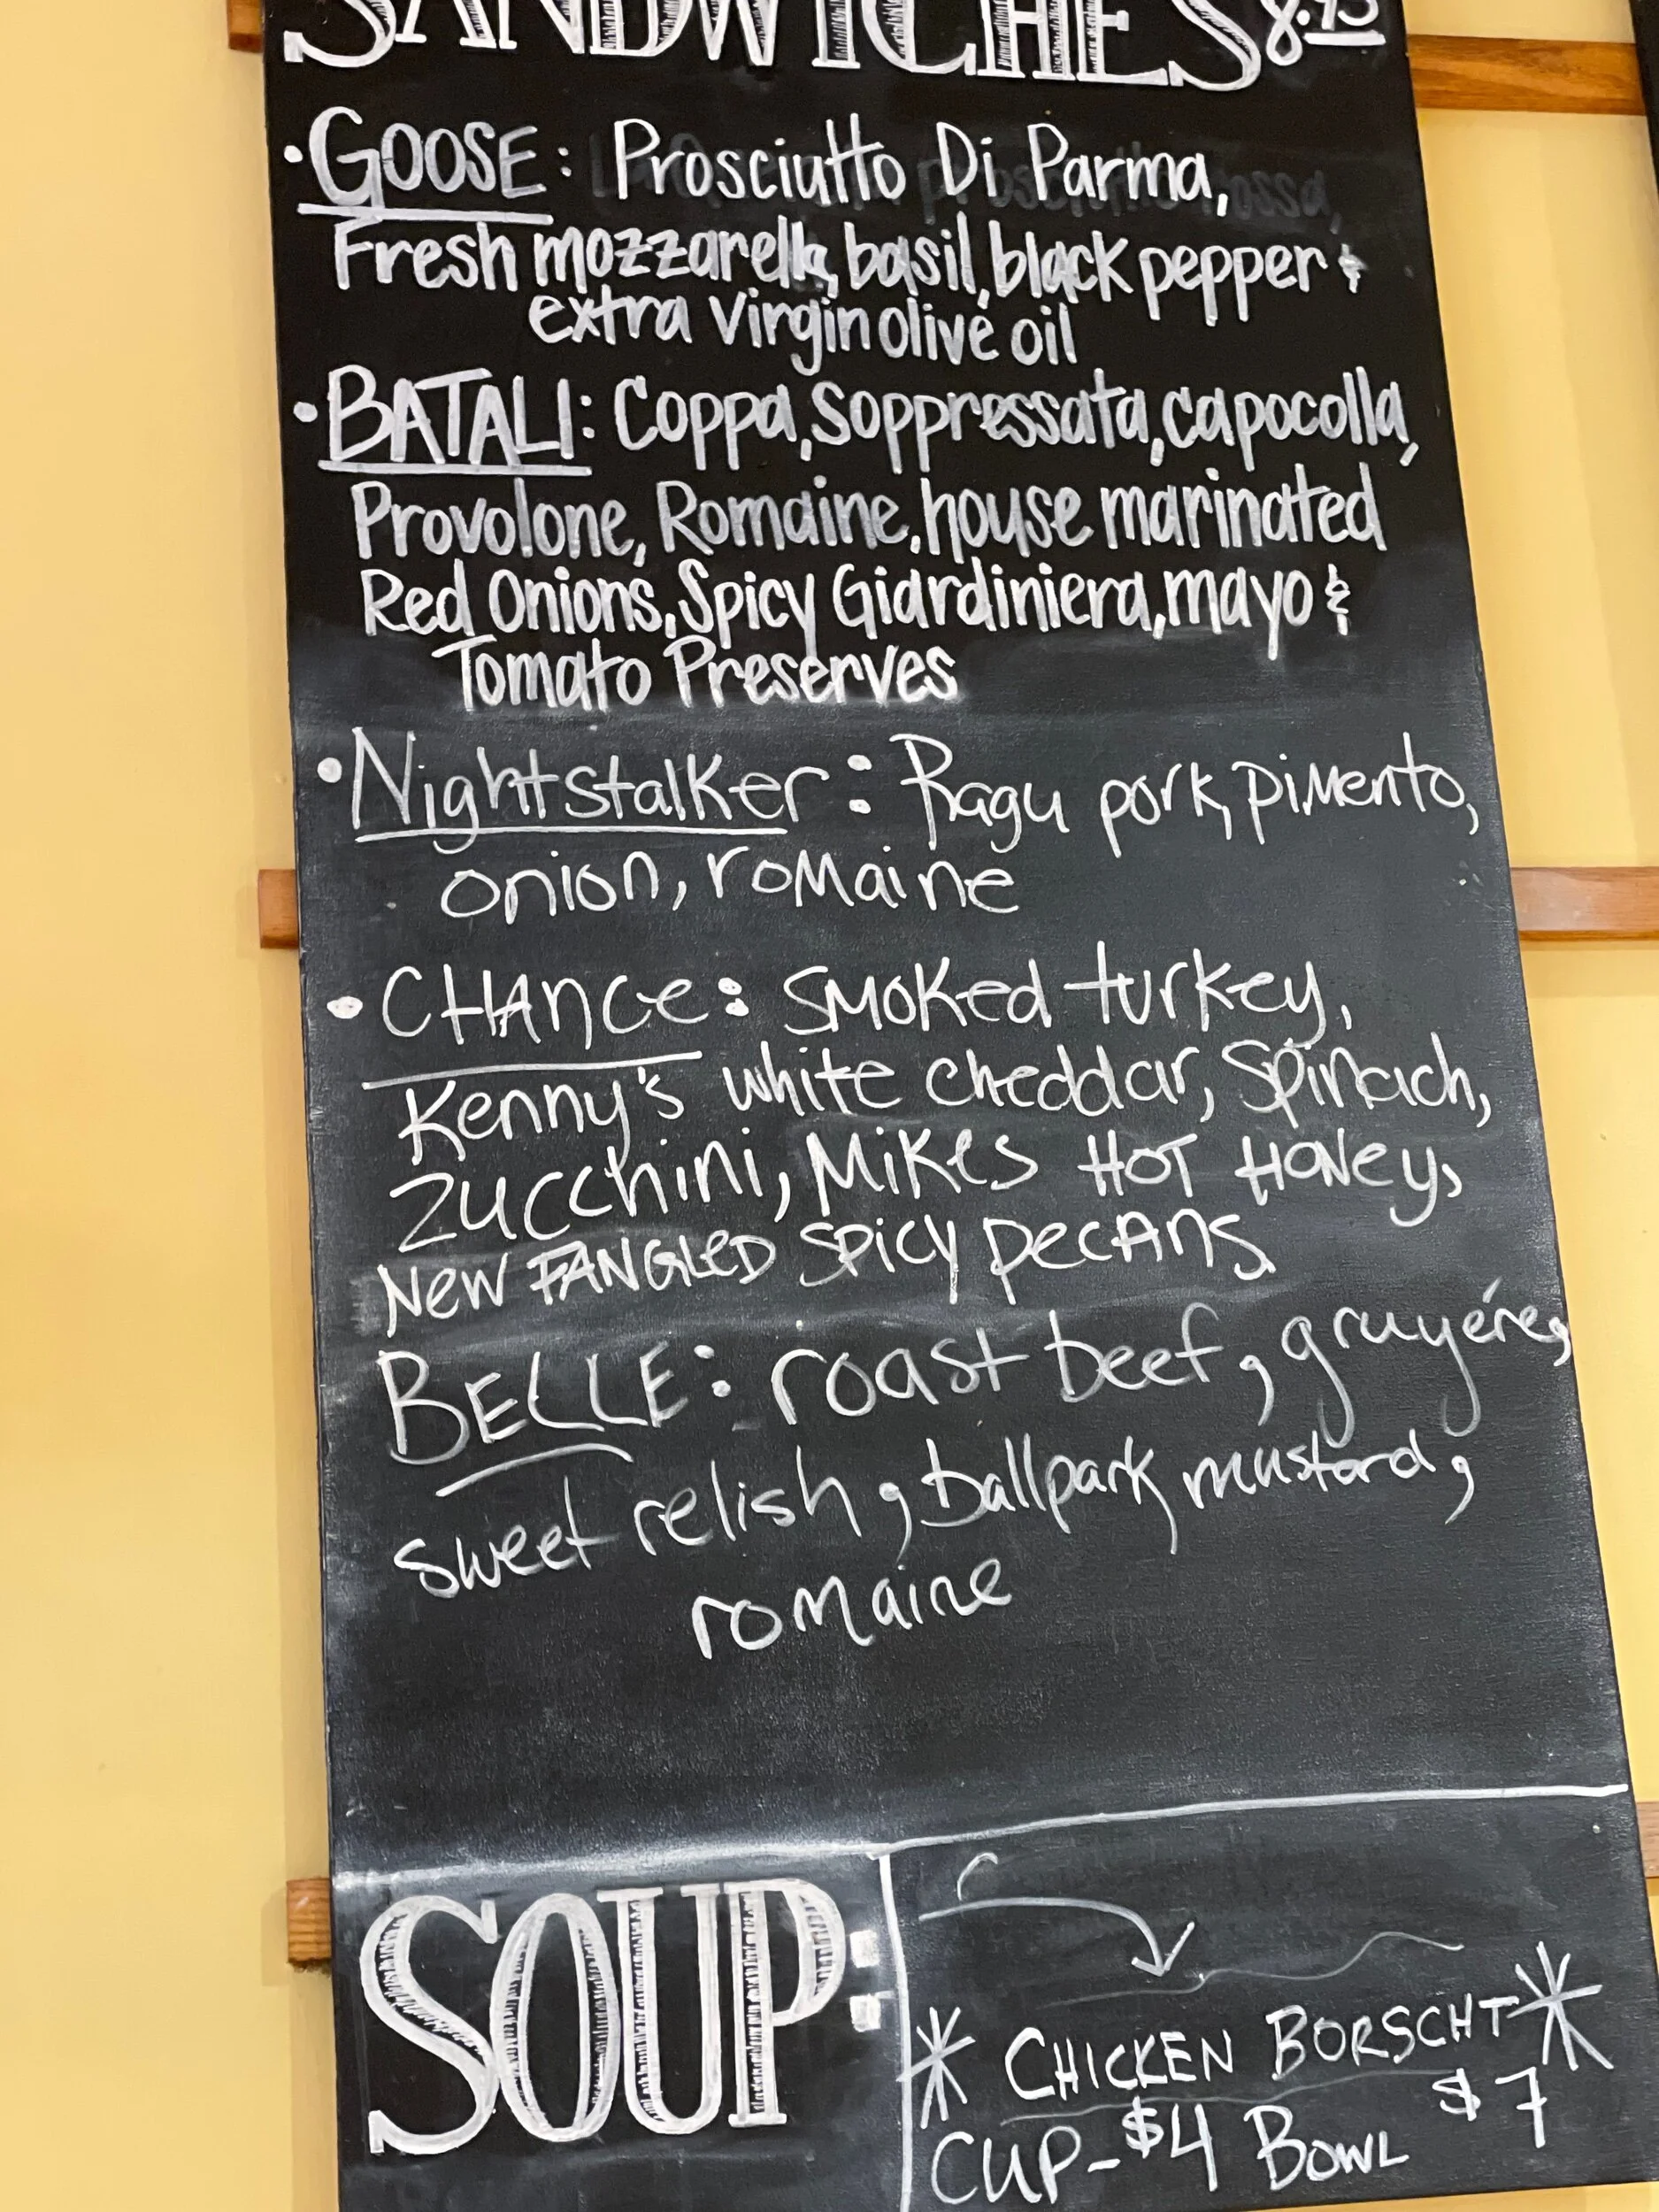 SANDWICHES 8.95
• GOOSE: Prosciutto Di Parma,
Fresh mozzarella, basil, black pepper &
extra virgin olive oil
• BATALI: Coppa, Soppressata, capocolla,
Provolone, Romaine, house marinated
Red Onions, Spicy Giardiniera, mayo &
Tomato Preserves
• Nightstalker: Ragu pork, pimento,
onion, romaine
• CHANCE: Smoked turkey,
Kenny's white cheddar, Spinach,
Zucchini, Mikes HOT HONEY,
NEW FANGLED SPICY pecans.
BELLE: roast beef, gruyére,
sweet relish, ballpark mustard,
romaine
SOUP:
* CHICKEN BORSCHT *
CUP-$4 BOWL $7